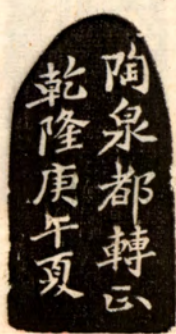 陶泉都轉正
乾隆庚午夏